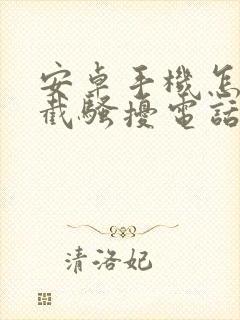 安卓手機怎
截騷擾電話
清洛妃